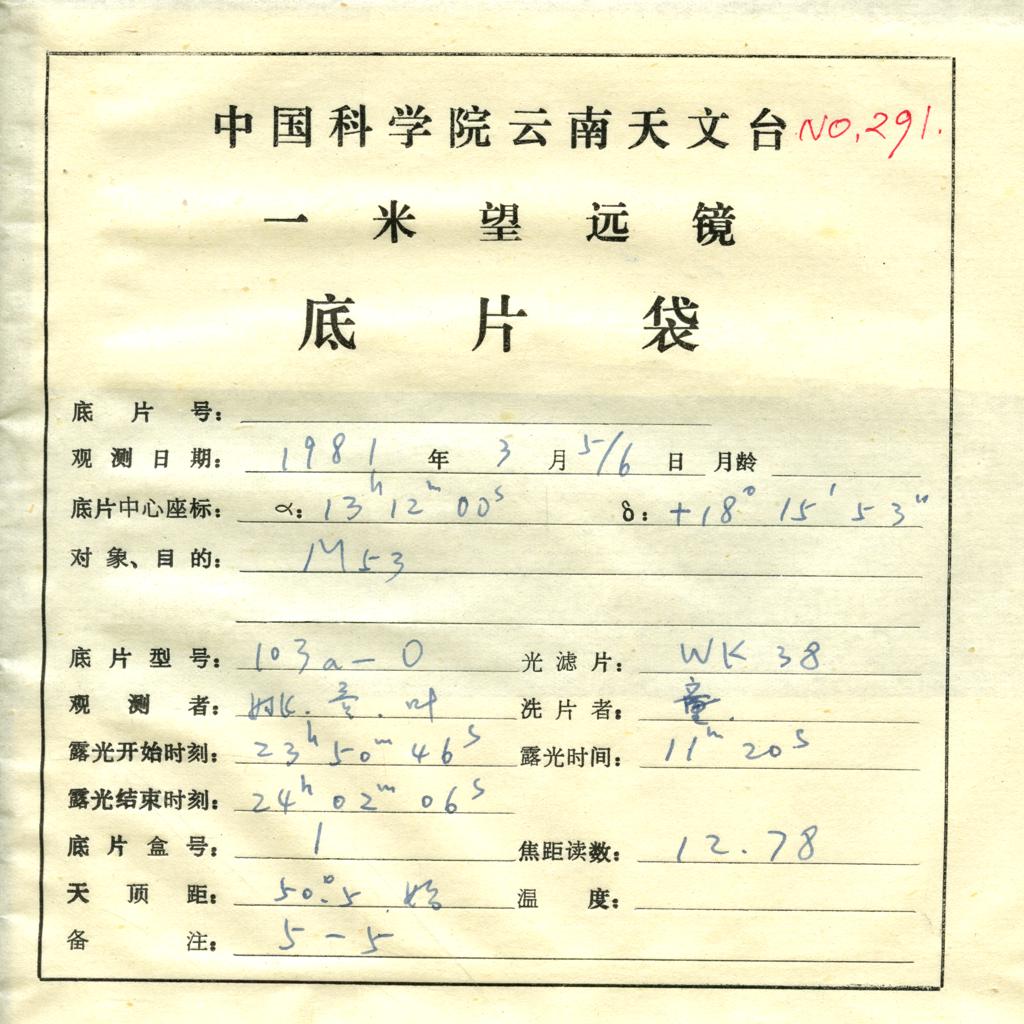 中国科学院云南天文台 NO.291.
一米望远镜
底片袋
底片号：
观测日期： 1981 年 3 月 5/6 日 月龄
底片中心座标： α: 13h 12m 00s δ: +18° 15′ 53″
对象、目的： M53
底片型号： 103a-O 光滤片： WK 38
观测者： 姚. . 叶 洗片者： 童.
露光开始时刻： 23h 50m 46s 露光时间： 11m 20s
露光结束时刻： 24h 02m 06s
底片盒号： 1 焦距读数： 12.78
天顶距： 50°.5 始 温度：
备注： 5-5